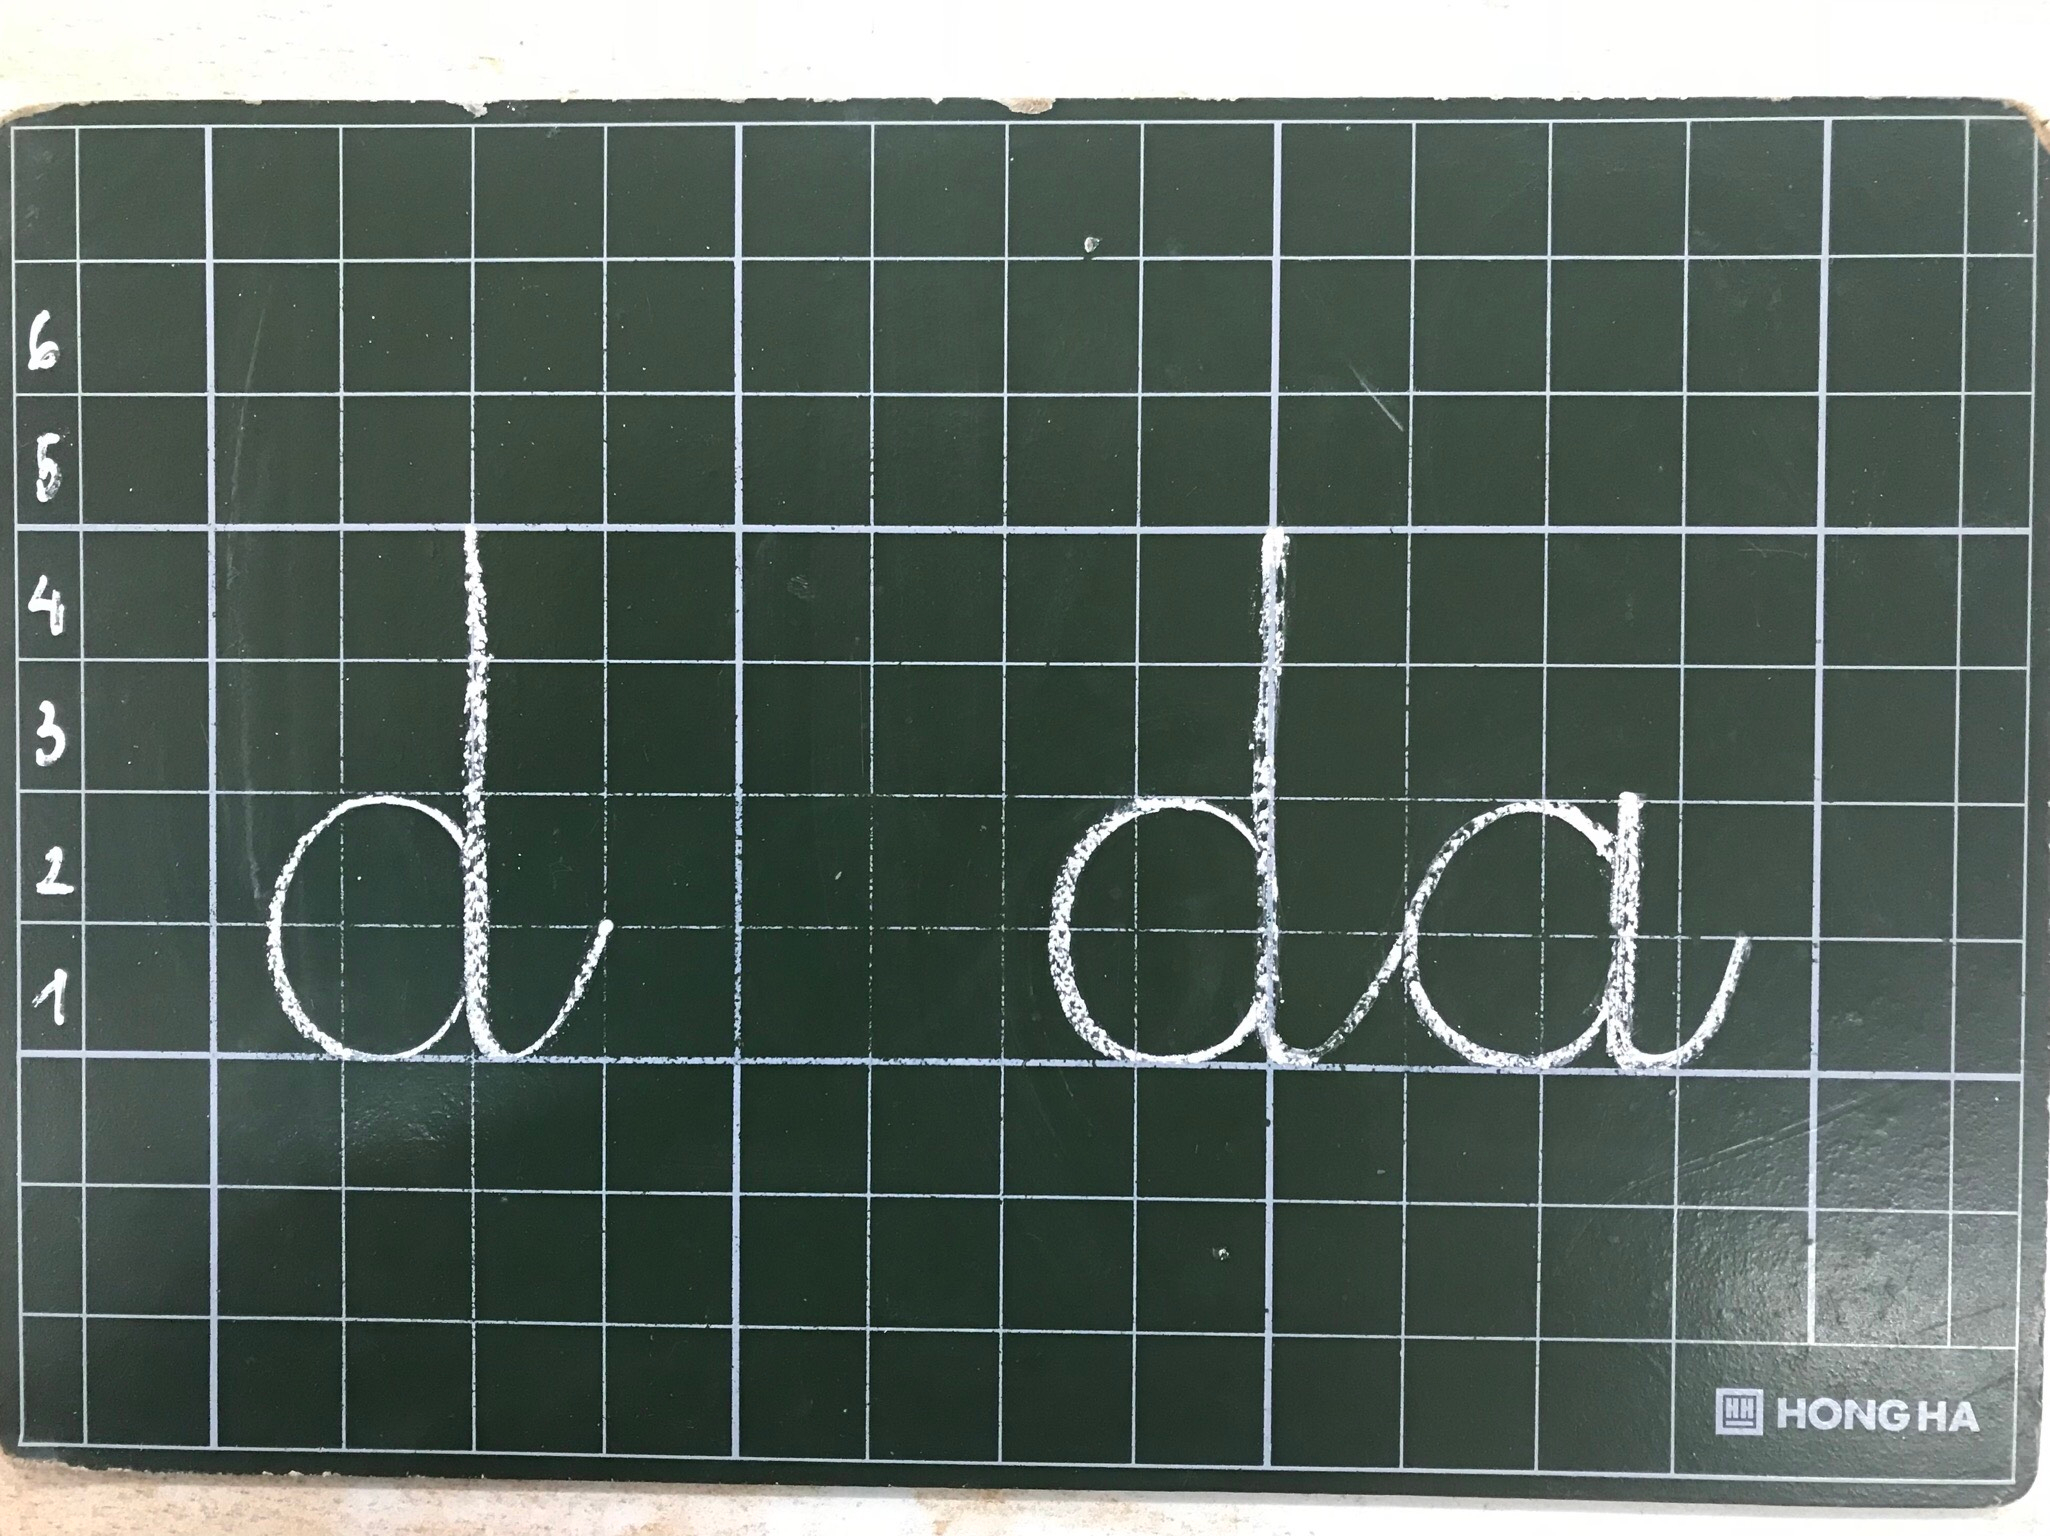 6
5
4
3
2
1
d da
HONG HA